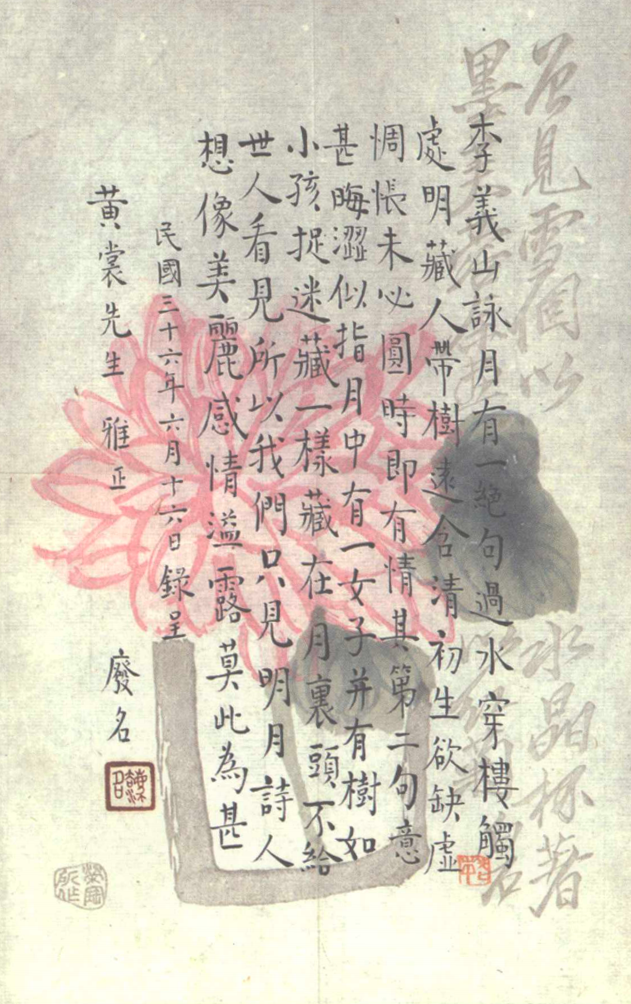 李義山詠月有一絕句過水穿樓觸
處明藏人帶樹遠含清初生欲缺虛
惆悵未必圓時即有情其第二句意
甚晦澀似指月中有一女子并有樹如
小孩捉迷藏一樣藏在月裏頭不給
世人看見所以我們只見明月詩人
想像美麗感情溢露莫此為甚
民國三十六年六月十六日錄呈
黃裳先生 雅正
廢名
曾見雪個以
水晶杯著
墨